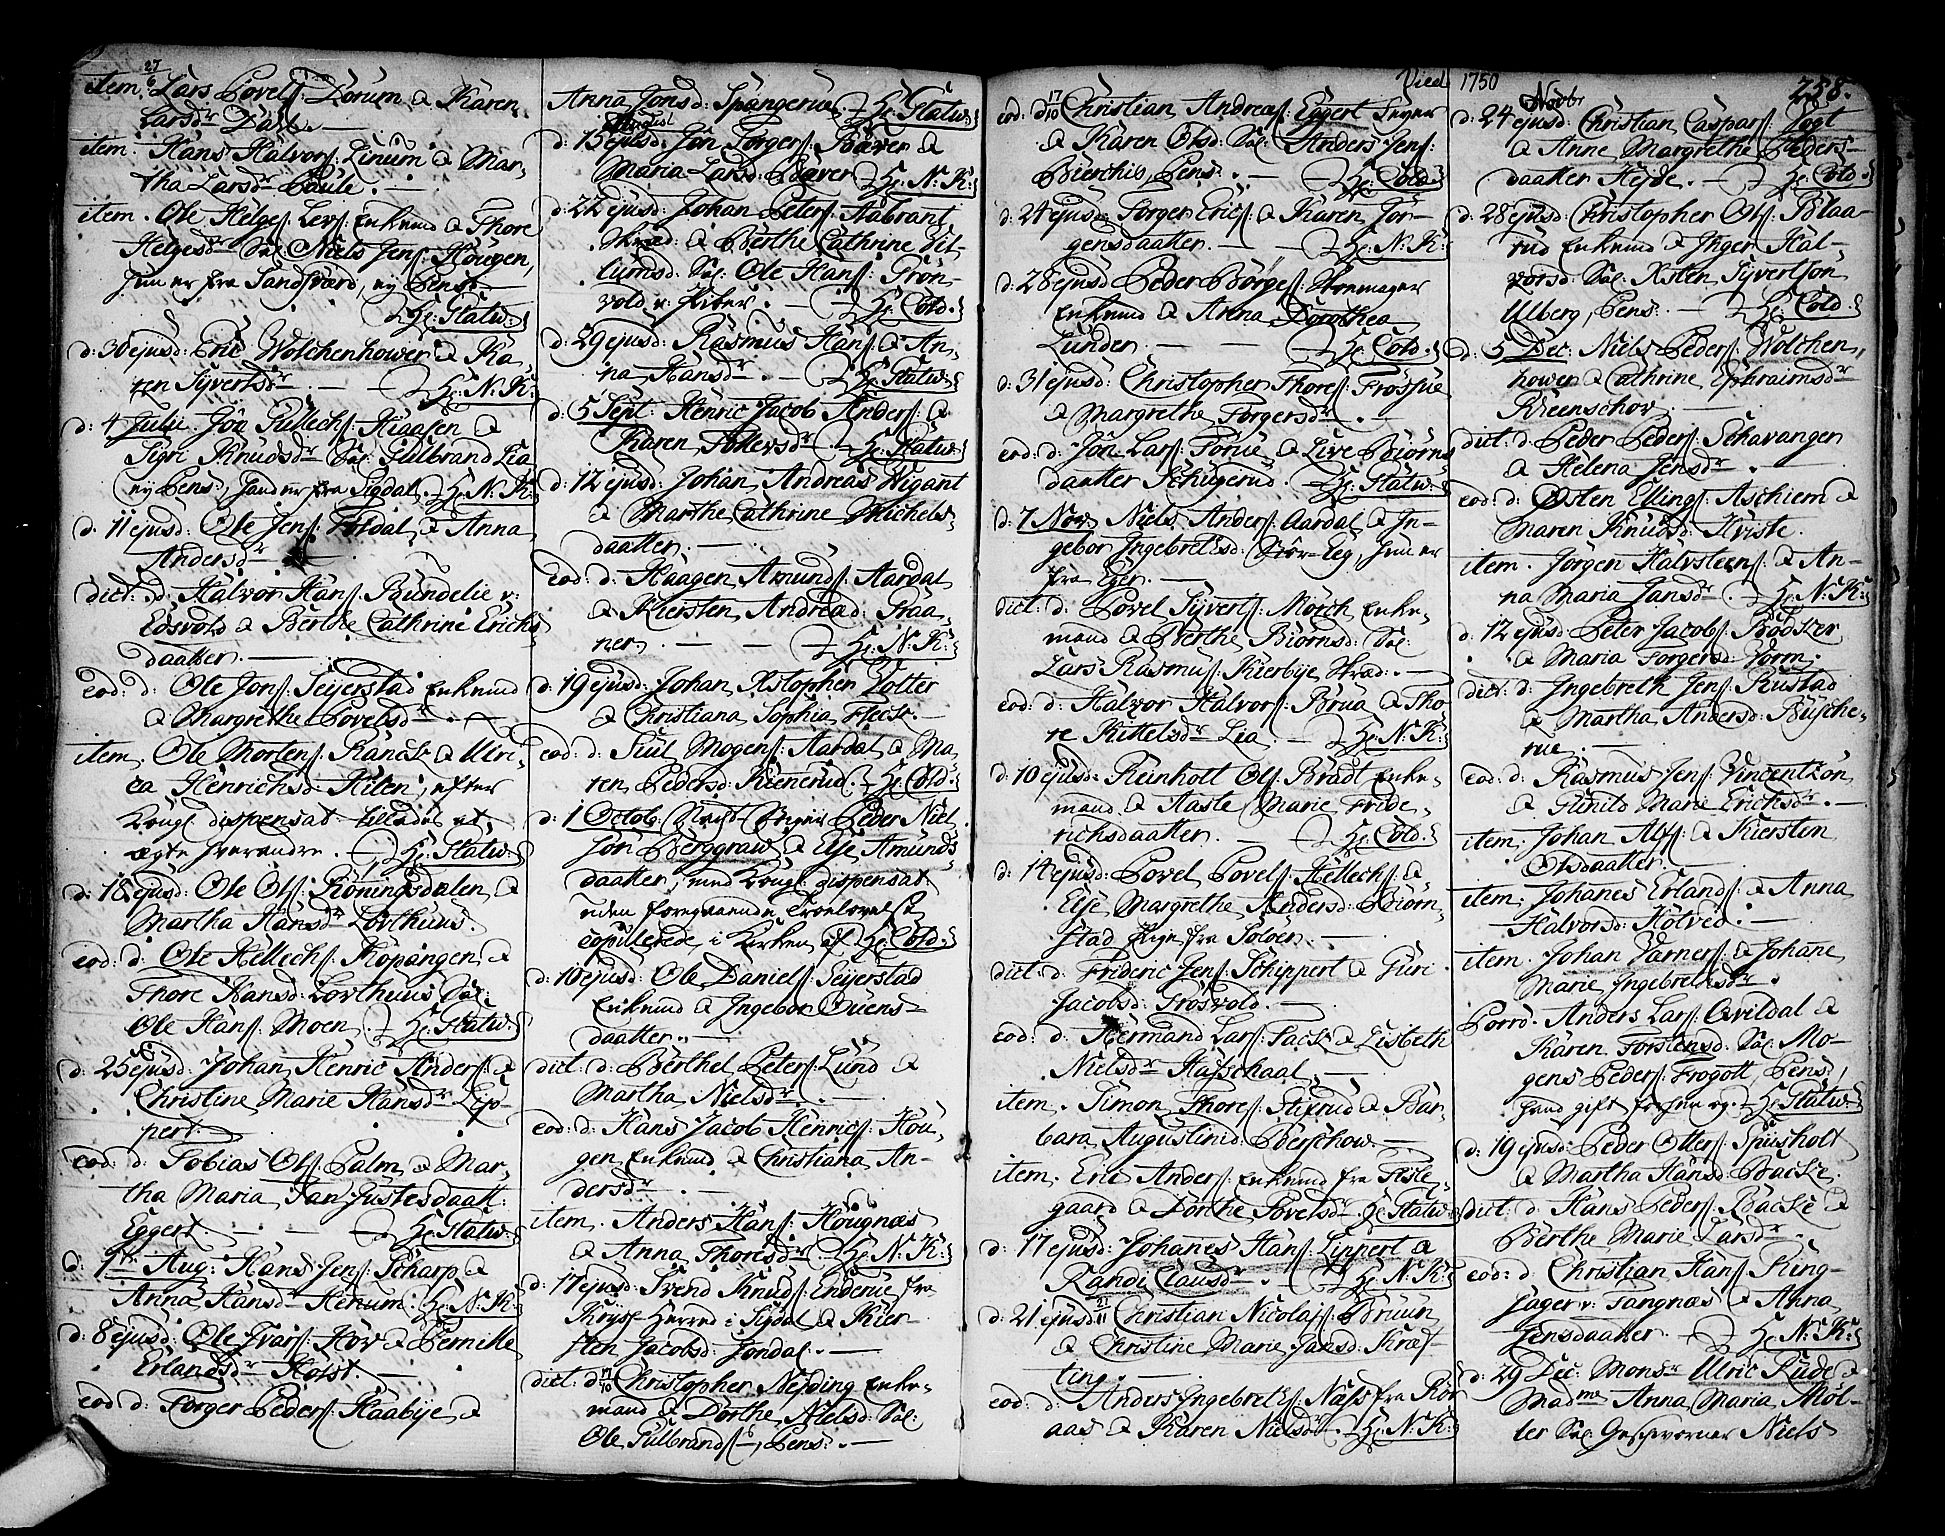 27/6
item. Lars Povels: Dorum & Karen
Larsdr Dahl. —
item. Hans Halvors: Linum & Mar-
tha Larsdr Paule. —
item. Ole Helges: Lers: Enkmd & Thore
Helgesdr Sal: Niels Jens: Hougen,
hun er fra Sandsværd, ey Pens: —
Hr: Statw:
d: 30 ejusd: Eric Wolchenhower & Ka-
ren Syvertsdr. — Hr: N: K:
d: 4 Julii Jon Gullechs: Haasen &
Sigri Knudsdr Sal: Gulbrand Lia
ey Pens:, hand er fra Sigdal. Hr: N: K:
d: 11 ejusd: Ole Jens: Foldal & Anna
Andersdr. —
dict: d: Halvor Hans: Bundelie v:
Edsvold & Berthe Cathrine Erichs
daatter. —
eod: d: Ole Jons: Seijerstad Enkmd
& Margrethe Povelsdr. —
item. Ole Mortens: Ranck & Ulri-
ca Henrichsd: Hilen, efter
Kongl. dispensat: tilladet at
ægte hverandre. — Hr: Statw:
d: 18 ejusd: Ole Ols: Koningsdalen &
Martha Hansdr Lorthuus.
eod: d: Ole Hellechs: Kopangen &
Thore Hansd: Lorthuus Sal:
Ole Hans: Moen. Hr: Statw:
d: 25 ejusd: Johan Henric Anders: &
Christine Marie Hansdr Lip-
pert. —
eod: d: Tobias Ols: Palm & Mar-
tha Maria Jan Justesdaatt:
Eggert. — Hr: Statw:
d: 1ste Aug: Hans Jens: Scharp &
Anna Hansdr Henum: Hr: N: K:
d: 8 ejusd: Ole Ivars: Hov & Pernille
Erlandsdr Holst. —
eod: d: Torger Peders: Haabye &
Anna Jonsd: Spangerud. Hr: Statw:
August
d: 15 ejusd: Jon Torgers: Bæver &
Maria Larsd: Bæver Hr: N: K:
d: 22 ejusd: Johan Peters: Aabrant
Skræd: & Berthe Cathrine Vil-
lumsd: Sal: Ole Hans: Fron-
vold v: Fiber. — Hr: Cold:
d: 29 ejusd: Rasmus Hans: & An-
na Hansdr. — Hr: Statw:
d: 5 Sept: Henric Jacob Anders: &
Karen Tollevsdr. Hr: Statw:
d: 12 ejusd: Johan Andreas Wigant
& Marthe Cathrine Michels-
daatter. —
eod: d: Haagen Amunds: Aardal
& Kiersten Andread: Praa-
ner. — Hr: N: K:
d: 19 ejusd: Johan Xstopher Zolter
& Christiana Sophia Fleck. —
eod: d: Juul Mogens: Aardal & Ma-
ren Pedersd: Kienerud. Hr: Cold:
d: 1 Octob: Peder Niel-
søn Berggraw & Else Amunds-
daatter, med Kongl. dispensat:
uden foregaaende Trolovelse
copulerede i Kirken af Hr: Cold:
d: 10 ejusd: Ole Daniels: Seijerstad
Enkmd & Ingebor Ouens-
daatter. —
dict: d: Berthel Peters: Lund &
Martha Nielsdr. —
eod: d: Hans Jacob Henrics: Hou-
gen Enkmd & Christiana An-
dersdr. —
item. Anders Hans: Hougnæs
& Anna Thoresdr. Hr: N: K:
d: 17 ejusd: Svend Knuds: Enderud fra
Krysf Herred i Sigdal & Kier-
sten Jacobsd: Jondal. —
dict: d: 17/10 Christopher Neyding Enke-
mand & Dorthe Nielsd: Sal:
Ole Gulbrands:, Pens: —
Vied 1750
258.
eod: d: 17/10 Christian Andreas: Eggert Feyer
& Karen Olsd: Sal: Anders Jens:
Bierchis, Pens: Hr: Cold:
d: 24 ejusd: Torger Erics: & Karen Jor-
gensdaatter. — Hr: N: K:
d: 28 ejusd: Peder Børges: Skoemager
Enkmd & Anna Dorothea
Lunder — Hr: Cold:
d: 31 ejusd: Christopher Thores: Frossue
& Margrethe Torgersdr. —
eod: d: Jon Lars: Torue & Live Biorns
daatter Schugerud. Hr: Statw:
d: 7 Nov: Niels Anders: Aardal & In-
gebor Ingebretsd: Stor-Eeg, hun er
fra Eger. —
dict: d: Povel Syverts: Mørch Enke-
mand & Berthe Biornsd: Sal:
Lars Rasmus: Kierbye Skræd: —
eod: d: Halvor Halvors: Brua & Tho-
re Kittelsdr Lia. — Hr: N: K:
d: 10 ejusd: Reinholt Ols: Bradt Enke-
mand & Aaste Marie Fride-
richsdaatter. — Hr: Cold:
d: 14 ejusd: Povel Povels: Hellechs: &
Else Margrethe Andersd: Biorn-
stad Pige fra Soloer. —
dict: d: Frideric Jens: Schippert & Guri
Jacobsd: Frosvold. —
eod: d: Hermand Lars: Sack & Lisbeth
Nielsdr Haschaal. —
item. Simon Thores: Stixrud & Bar-
bara Augustinid: Berschow. —
item. Eric Anders: Enkmd fra Fisle-
gaard & Dorthe Povelsdr Hr: Statw:
d: 17 ejusd: Johanes Hans: Lippert &
Randi Clausdr. — Hr: N: K:
d: 21 ejusd: Christian Nicolas: Bruun
& Christine Marie Jansd: Kræf-
ting. —
eod: d: Anders Ingebrets: Næss fra Ror
aas & Karen Nielsdr. Hr: N: K:
Novbr
d: 24 ejusd: Christian Caspars: Vogt
& Anne Margrethe Peders-
daatter Heyde. — Hr: Cold:
d: 28 ejusd: Christopher Ols: Blaa-
rud Enkmd & Inger Hal-
vorsd: Sal: Xsten Syvertsøn
Ulberg, Pens: — Hr: Cold:
d: 5 Dec: Niels Peders: Wolchen-
hower & Cathrine Ephraimsdr
Rieenschov. —
dict: d: Peder Peders: Schavanger
& Helena Jensdr. —
eod: d: Østen Ellings: Aschiem &
Maren Knudsd: Hviste.
item. Jørgen Halvsteens: & An-
na Maria Jansdr. Hr: N: K:
d: 12 ejusd: Peter Jacobs: Bødker
& Maria Torgersd: Vorm.
dict: d: Ingebreth Jens: Rustad
& Martha Andersd: Busche-
rue. —
eod: d: Rasmus Jens: Vincentzon
& Gunild Marie Erichsdr. —
item. Johan Alfs: & Kiersten
Olsdaatter. —
item. Johanes Erlands: & Anna
Halvorsd: Hotved. —
item. Johan Varners: & Johane
Marie Ingebretsdr.
Porrò. Anders Lars: Qvildal &
Karen Torstensd: Sal: Mo-
gens Peders: Frogott, Pens:,
hand gift før, hun og. Hr: Statw:
d: 19 ejusd: Peder Otters: Spusholt
& Martha Hansd: Backe.
dict: d: Hans Peders: Backe &
Berthe Marie Larsdr.
eod: d: Christian Hans: Ring-
Jager v: Fangnæs & Anna
Jensdaatter. Hr: N: K:
d: 29 Dec: Monsr Ulric Rude &
Madme Anna Maria Mol-
ler Sal: Geschworner Niels